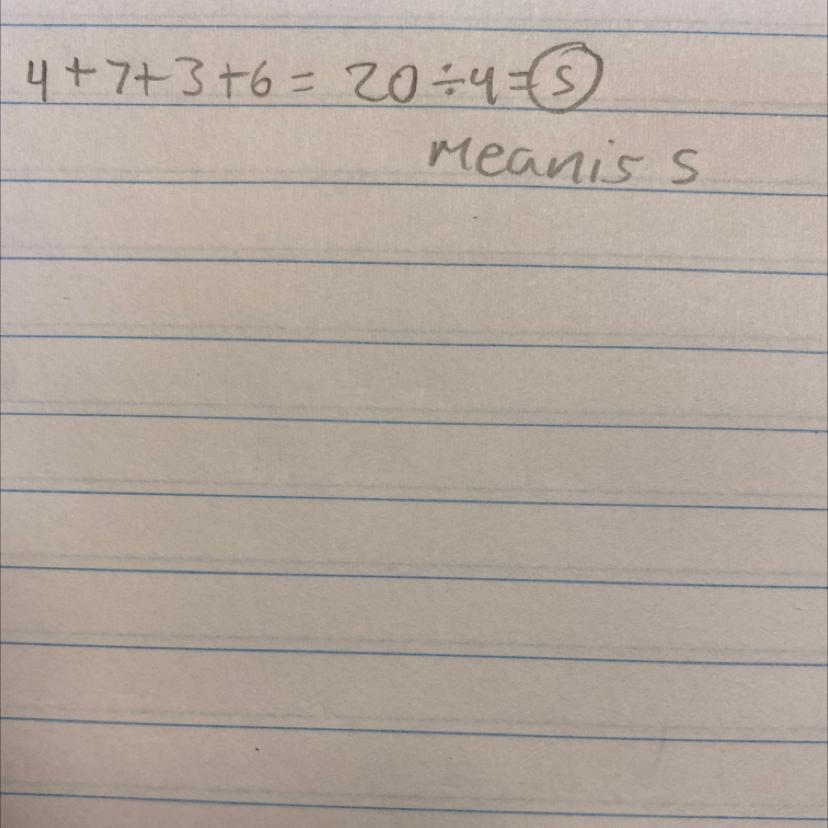 4+7+3+6 = 20÷4=5
Mean is 5